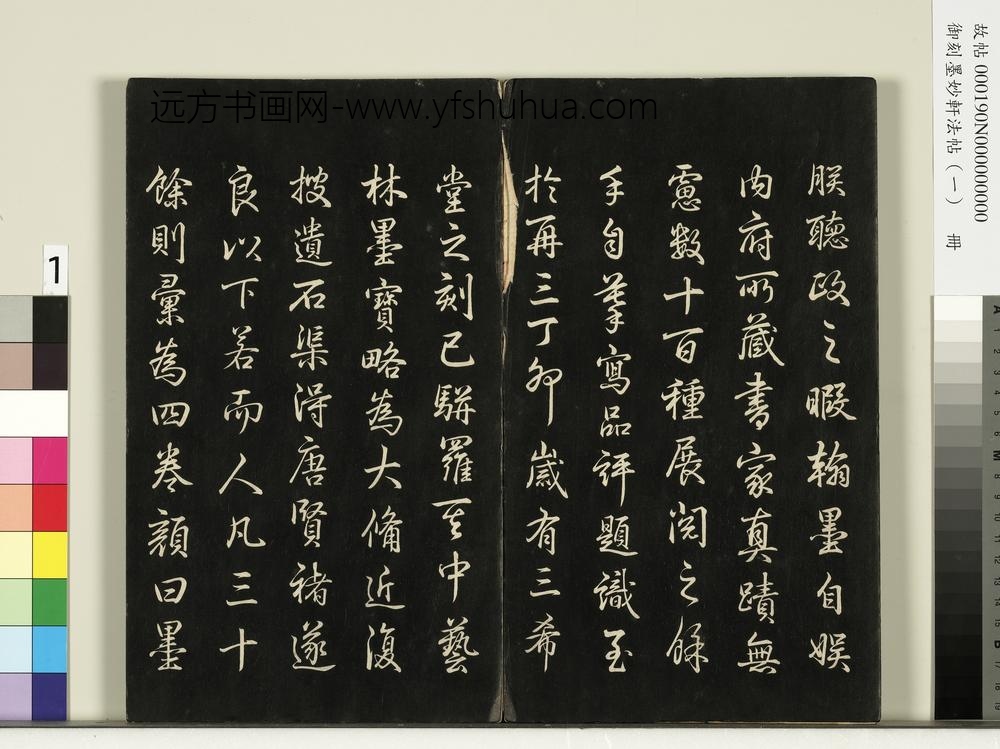 朕聽政之暇翰墨自娛
內府所藏書家真蹟無
慮數十百種展閱之餘
手自摹寫品評題識至
於再三丁卯歲有三希
堂之刻已駢羅其中藝
林墨寶略為大備近復
搜遺石渠得唐賢褚遂
良以下若而人凡三十
餘則彙為四卷顏曰墨
远方书画网-www.yfshuhua.com
故帖 000190N000000000
御刻墨妙軒法帖(一) 冊
1